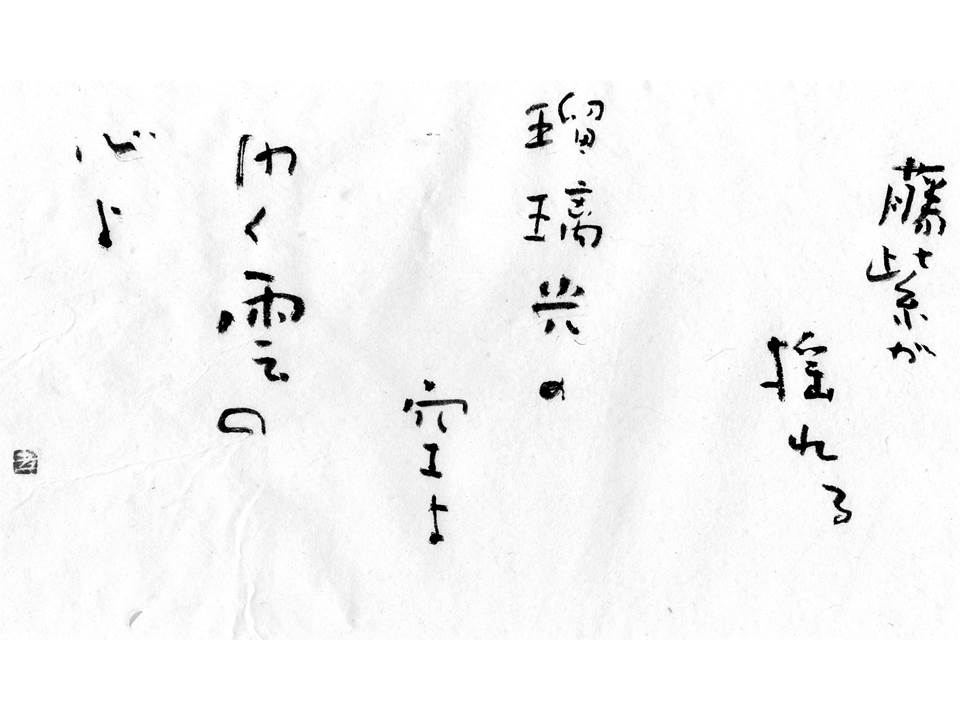 藤紫が
揺れる
瑠璃光の
空よ
ゆく雲の
心よ